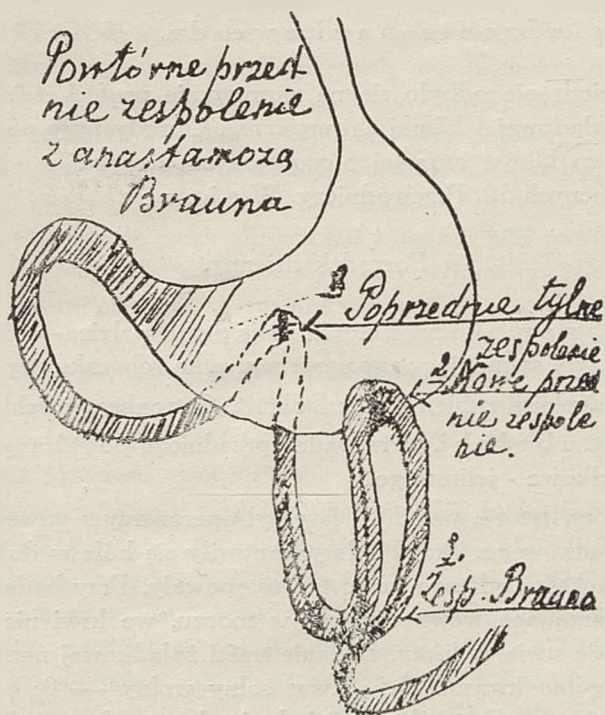 Powtórne przed
nie zespolenie
z anastamozą
Brauna
Poprzednie tylne
zespolenie
2. Nowe przed
nie zespole
nie.
Zesp. Brauna